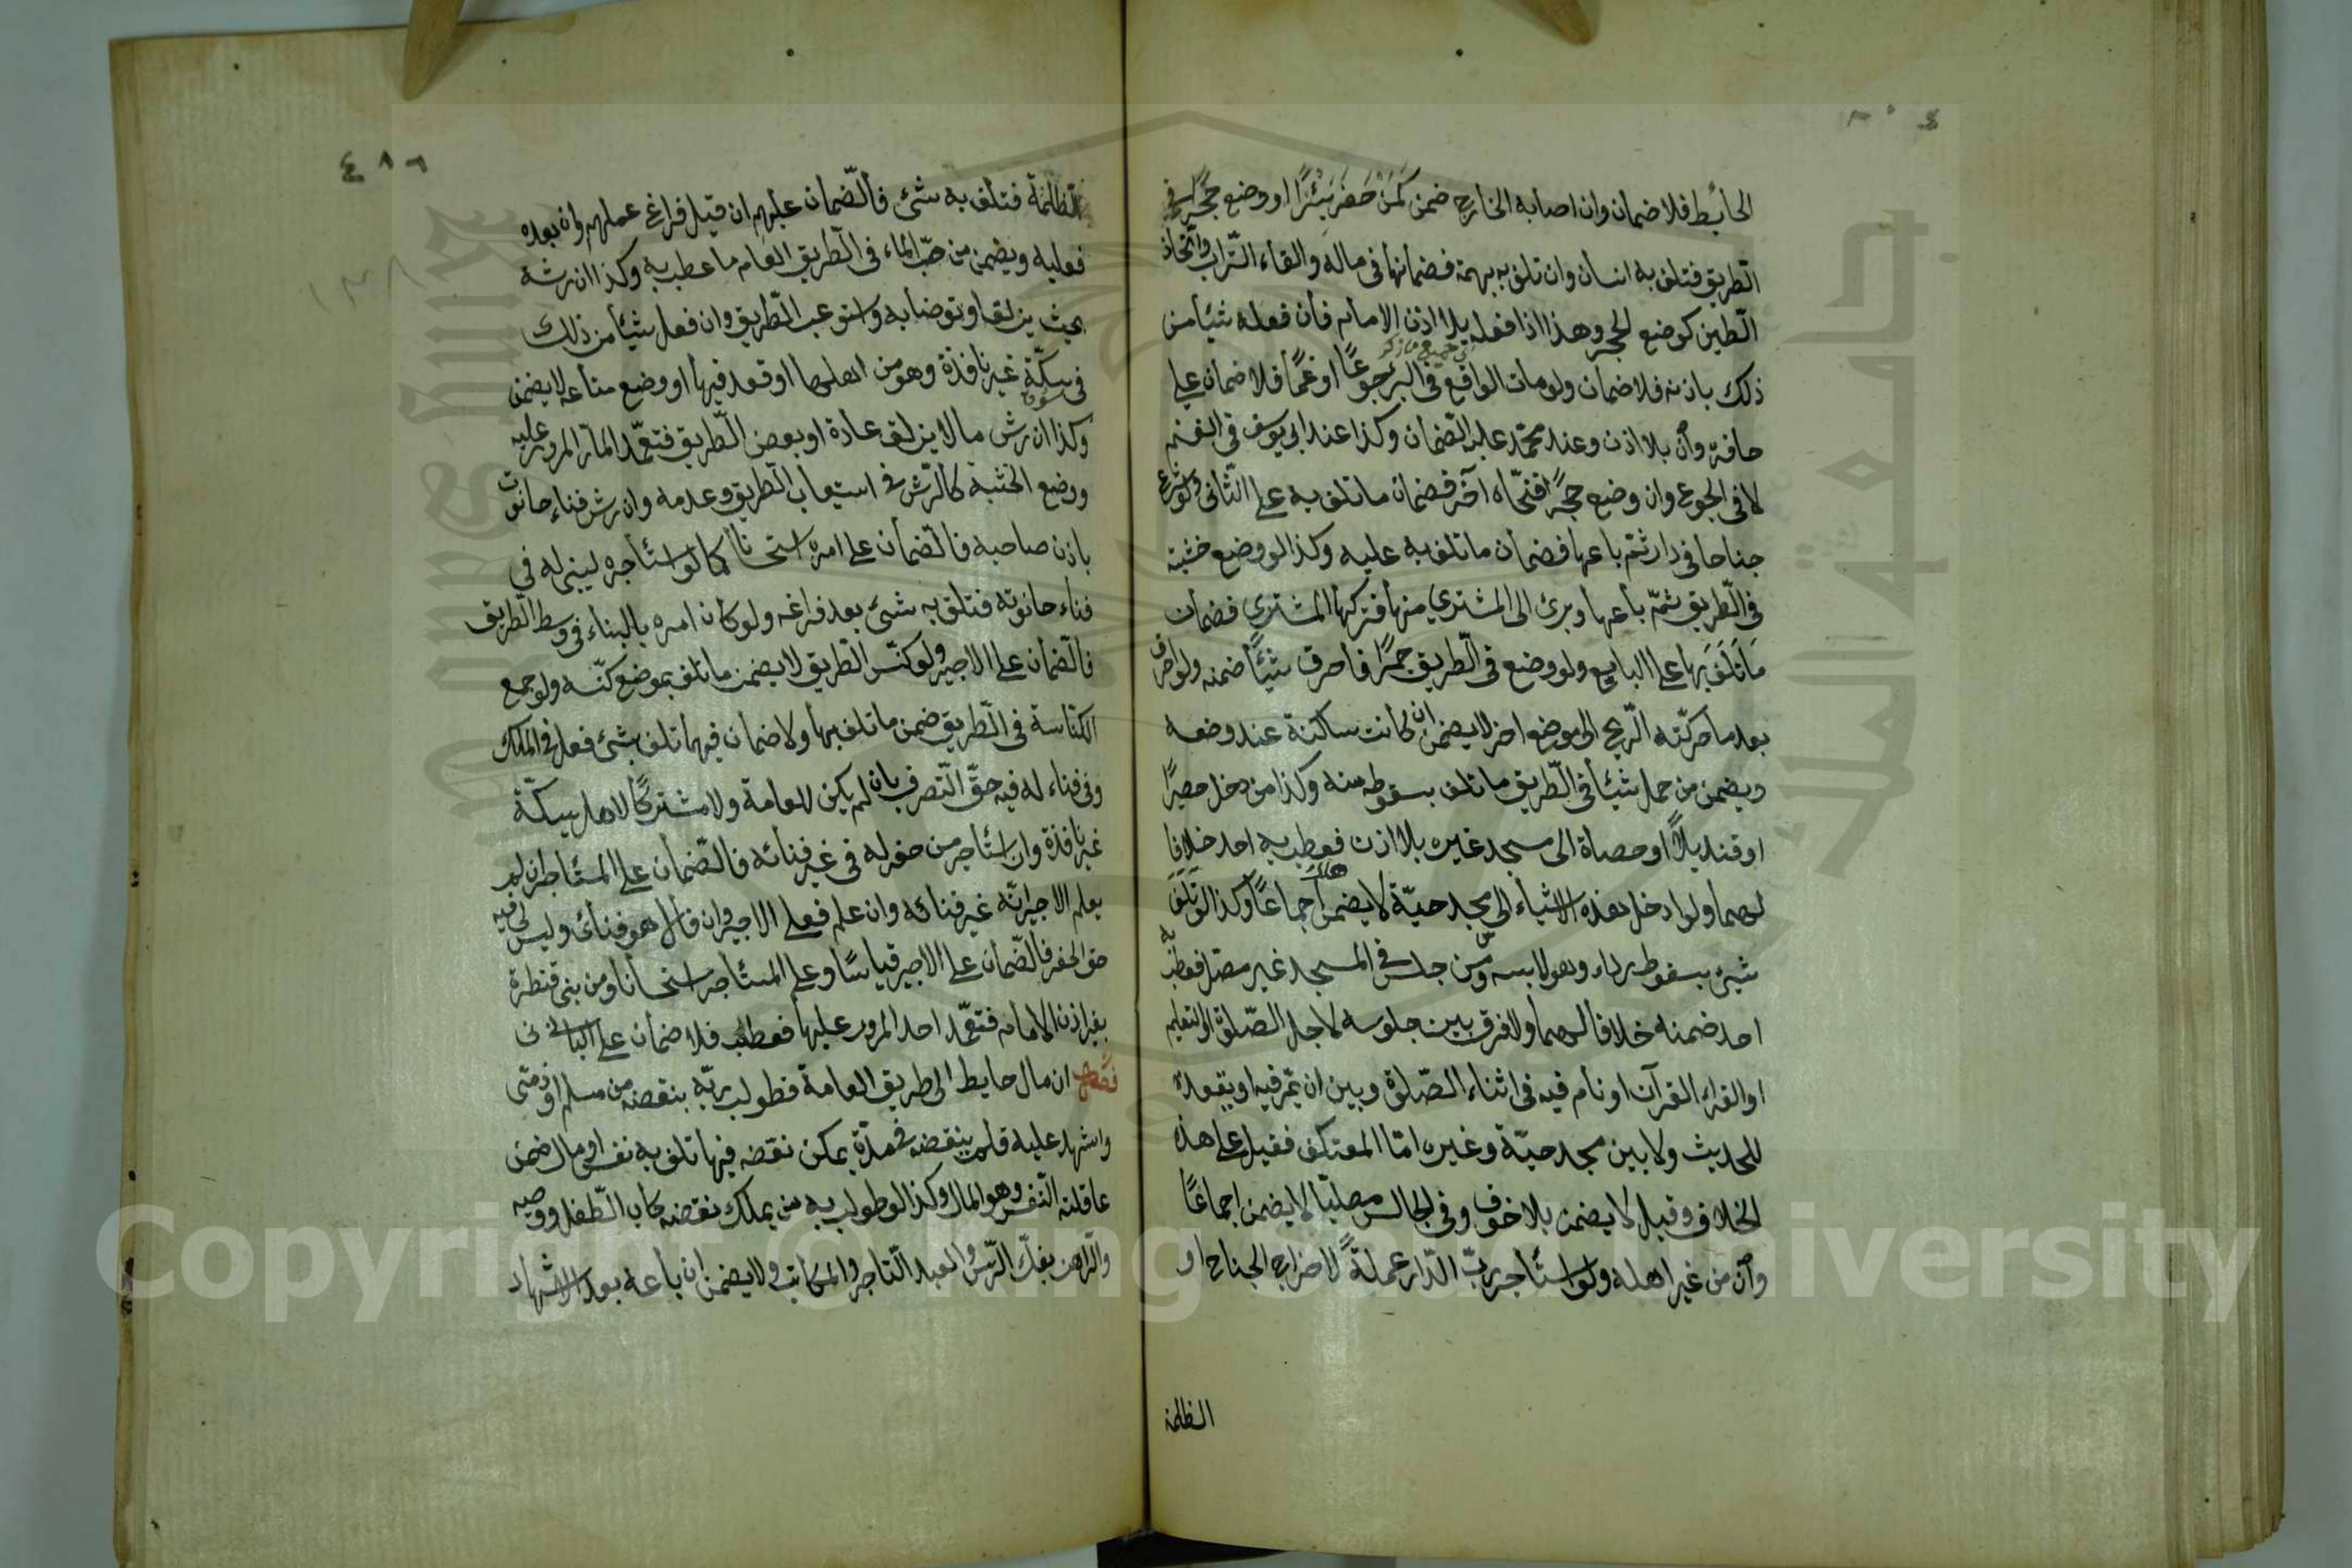 الحائط فلا ضمان وان اصابه الخارج ضمن كَمَنْ حَفَرَ بِئْرًا او وضع حجرًا في
الطّريق فتلف به انسان وان تلف به بهيمة فضمانها في ماله والقاء التّراب واتّخاذ
الطّين كوضع الحجر وهذا اذا فعله بلا اذن الامام فأن فعله شيئا من
في جميع ما ذكر
ذلك باذنه فلا ضمان ولو مات الواقع في البئر جوعًا او غمًّا فلا ضمان على
حافره وأن بلا اذن وعند محمّد عليه الضّمان وكذا عند ابي يوسف في الغم
لا في الجوع وان وضع حجرًا فنحّاه آخر فضمان ما تلف به على الثّاني ولو اشرع
جناحا في دار ثمّ باعها فضمان ما تلف به عليه وكذا لو وضع خشبة
في الطّريق ثمّ باعها وبرئ الى المشتري منها فتركها المشتري فضمان
مَا تَلَفَ بها على البايع ولو وضع في الطّريق جمرًا فاحرق شيئًا ضمنه ولو احرق
بعد ما حركّته الرّيح الى موضع اخر لا يضمن ان كانت ساكنة عند وضعه
ويضمن من حمل شيئا في الطّريق ما تلف بسقوطه منه وكذا من دخل حصيرًا
او قنديلاً او حصاة الى مسجد غيره بلا اذن فعطب به احد خلافا
لهما ولو ادخل هذه الاشياء الى مسجد حيّه لا يضمن اجماعًا وكذا لو تَلَفَ
شيئ بسقوط رداء وهو لابسه ومن جلس في المسجد غير مصلّ فعطب به
احد ضمنه خلافا لهما ولا فرق بين جلوسه لاجل الصّلوة او لتعليم
او القراء القرآن او نام فيه في اثناء الصّلوة وبين ان يمرّ فيه او يقعد
للحديث ولا بين مسجد حيّه وغيره امّا المعتكف فقيل على هذه
الخلاف وقيل لا يضمن بلا خوف وفي الجالس مصليّا لا يضمن اجماعًا
وأن من غير اهله ولو استأجر ربّ الدّار عملةً لاخراج الجناح او
الظلمة
٤٨٦
الظلمة فتلف به شئ فالضّمان عليهم ان قبل فراغ عملهم وان بعده
فعليه ويضمن من صبّ الماء في الطّريق العام ما عطب به وكذا ان رشه
بحيث يزلق او توضأ به واستوعب الطّريق وان فعل شيئا من ذلك
في سكّة غير نافذة وهو من اهلها او قعد فيها او وضع متاعه لا يضمن
وكذا ان رش ما لا يزلق عادة او بعض الطّريق فتعمّد المارّ المرور عليه
ووضع الخشبة كالرّش في استيعاب الطّريق وعدمه وان رش فناء حانوت
باذن صاحبه فالضّمان على امره استحسانا كما لو استأجره ليبنى له في
فناء حانوته فتلف به شئ بعد فراغه ولو كان امره بالبناء في وسط الطّريق
فالضّمان على الاجير ولو كنّس الطّريق لا يضمن ما تلف بموضع كنّسه ولو جمع
الكناسة في الطّريق ضمن ما تلف بها ولا ضمان فيما تلف بشئ فعل في الملك
وفي فناء له فيه حقّ التّصرف بان لم يكن للعامة ولا مشتركًا لاهل سكّة
غير نافذة وان استأجر من حفر له في غير فنائه فالضّمان على المستأجر ان لم
يعلم الاجير انّه غير فنائه وان علم فعلى الاجير وان قال هو فنائى وليس لى فيه
حق الحفر فالضّمان على الاجير قياسًا وعلى المستأجر استحسانا ومن بنى قنطرة
بغير اذن الامام فتعمّد احد المرور عليها فعطب فلا ضمان على البانى
فصل ان مال حايط الى طريق العامة فطولب ربّه بنقضه من مسلم او ذمّى
واشهد عليه فلم ينقضه في مدّة يمكن نقضه فيها تلف به نفس او مال ضمن
عاقلته النّفس وهو المال وكذا لو طولب به من يملك نقضه كاب الطّفل ووصيه
والرّاهن بفكّ الرّهن والعبد التّاجر والمكاتب ولا يضمن ان باعه بعد الاشهاد
Copyright © King Saud University
جامعة الملك سعود